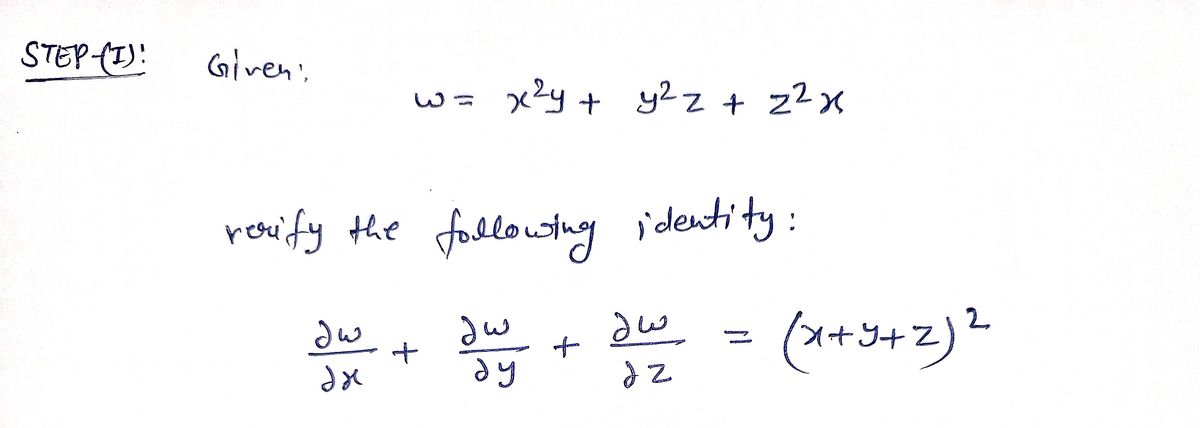 STEP-(I): Given:
w = x²y + y²z + z²x
verify the following identity:
∂w/∂x + ∂w/∂y + ∂w/∂z = (x+y+z)²